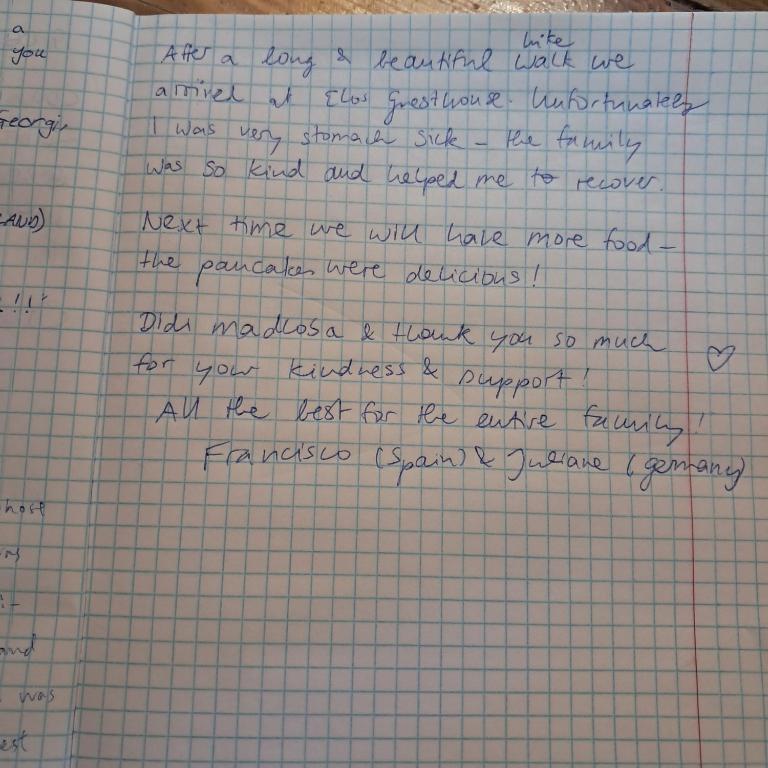 a
you
Georgi
LAND)
!!!
host
and
was
est
hike
After a long & beautiful walk we
arrived at Elos Guesthouse. Unfortunately
I was very stomach sick - the family
was so kind and helped me to recover.
Next time we will have more food -
the pancakes were delicious!
Didi madlosa & thank you so much ♡
for your kindness & support!
All the best for the entire family!
Francisco (Spain) & Juliane (Germany)